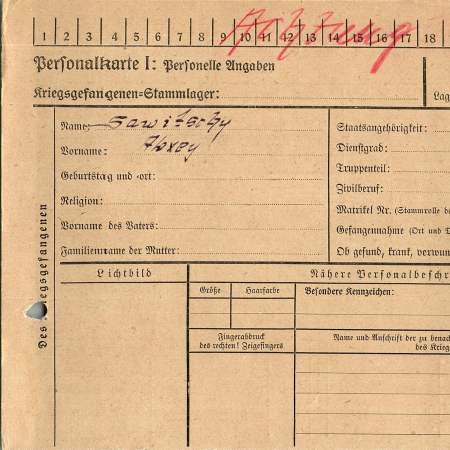 1 2 3 4 5 6 7 8 9 10 11 12 13 14 15 16 17 18
Achtung
Personalkarte I: Personelle Angaben
Kriegsgefangenen=Stammlager:
Lag
Des Kriegsgefangenen
Name: Sawitschy
Vorname: Alxey
Geburtstag und =ort:
Religion:
Vorname des Vaters:
Familienname der Mutter:
Staatsangehörigkeit:
Dienstgrad:
Truppenteil:
Zivilberuf:
Matrikel Nr. (Stammrolle de
Gefangennahme (Ort und D
Ob gesund, krank, verwun
Lichtbild
Nähere Personalbeschr
Größe
Haarfarbe
Besondere Kennzeichen:
Fingerabdruck
des rechten! Zeigefingers
Name und Anschrift der zu benac
des Krieg